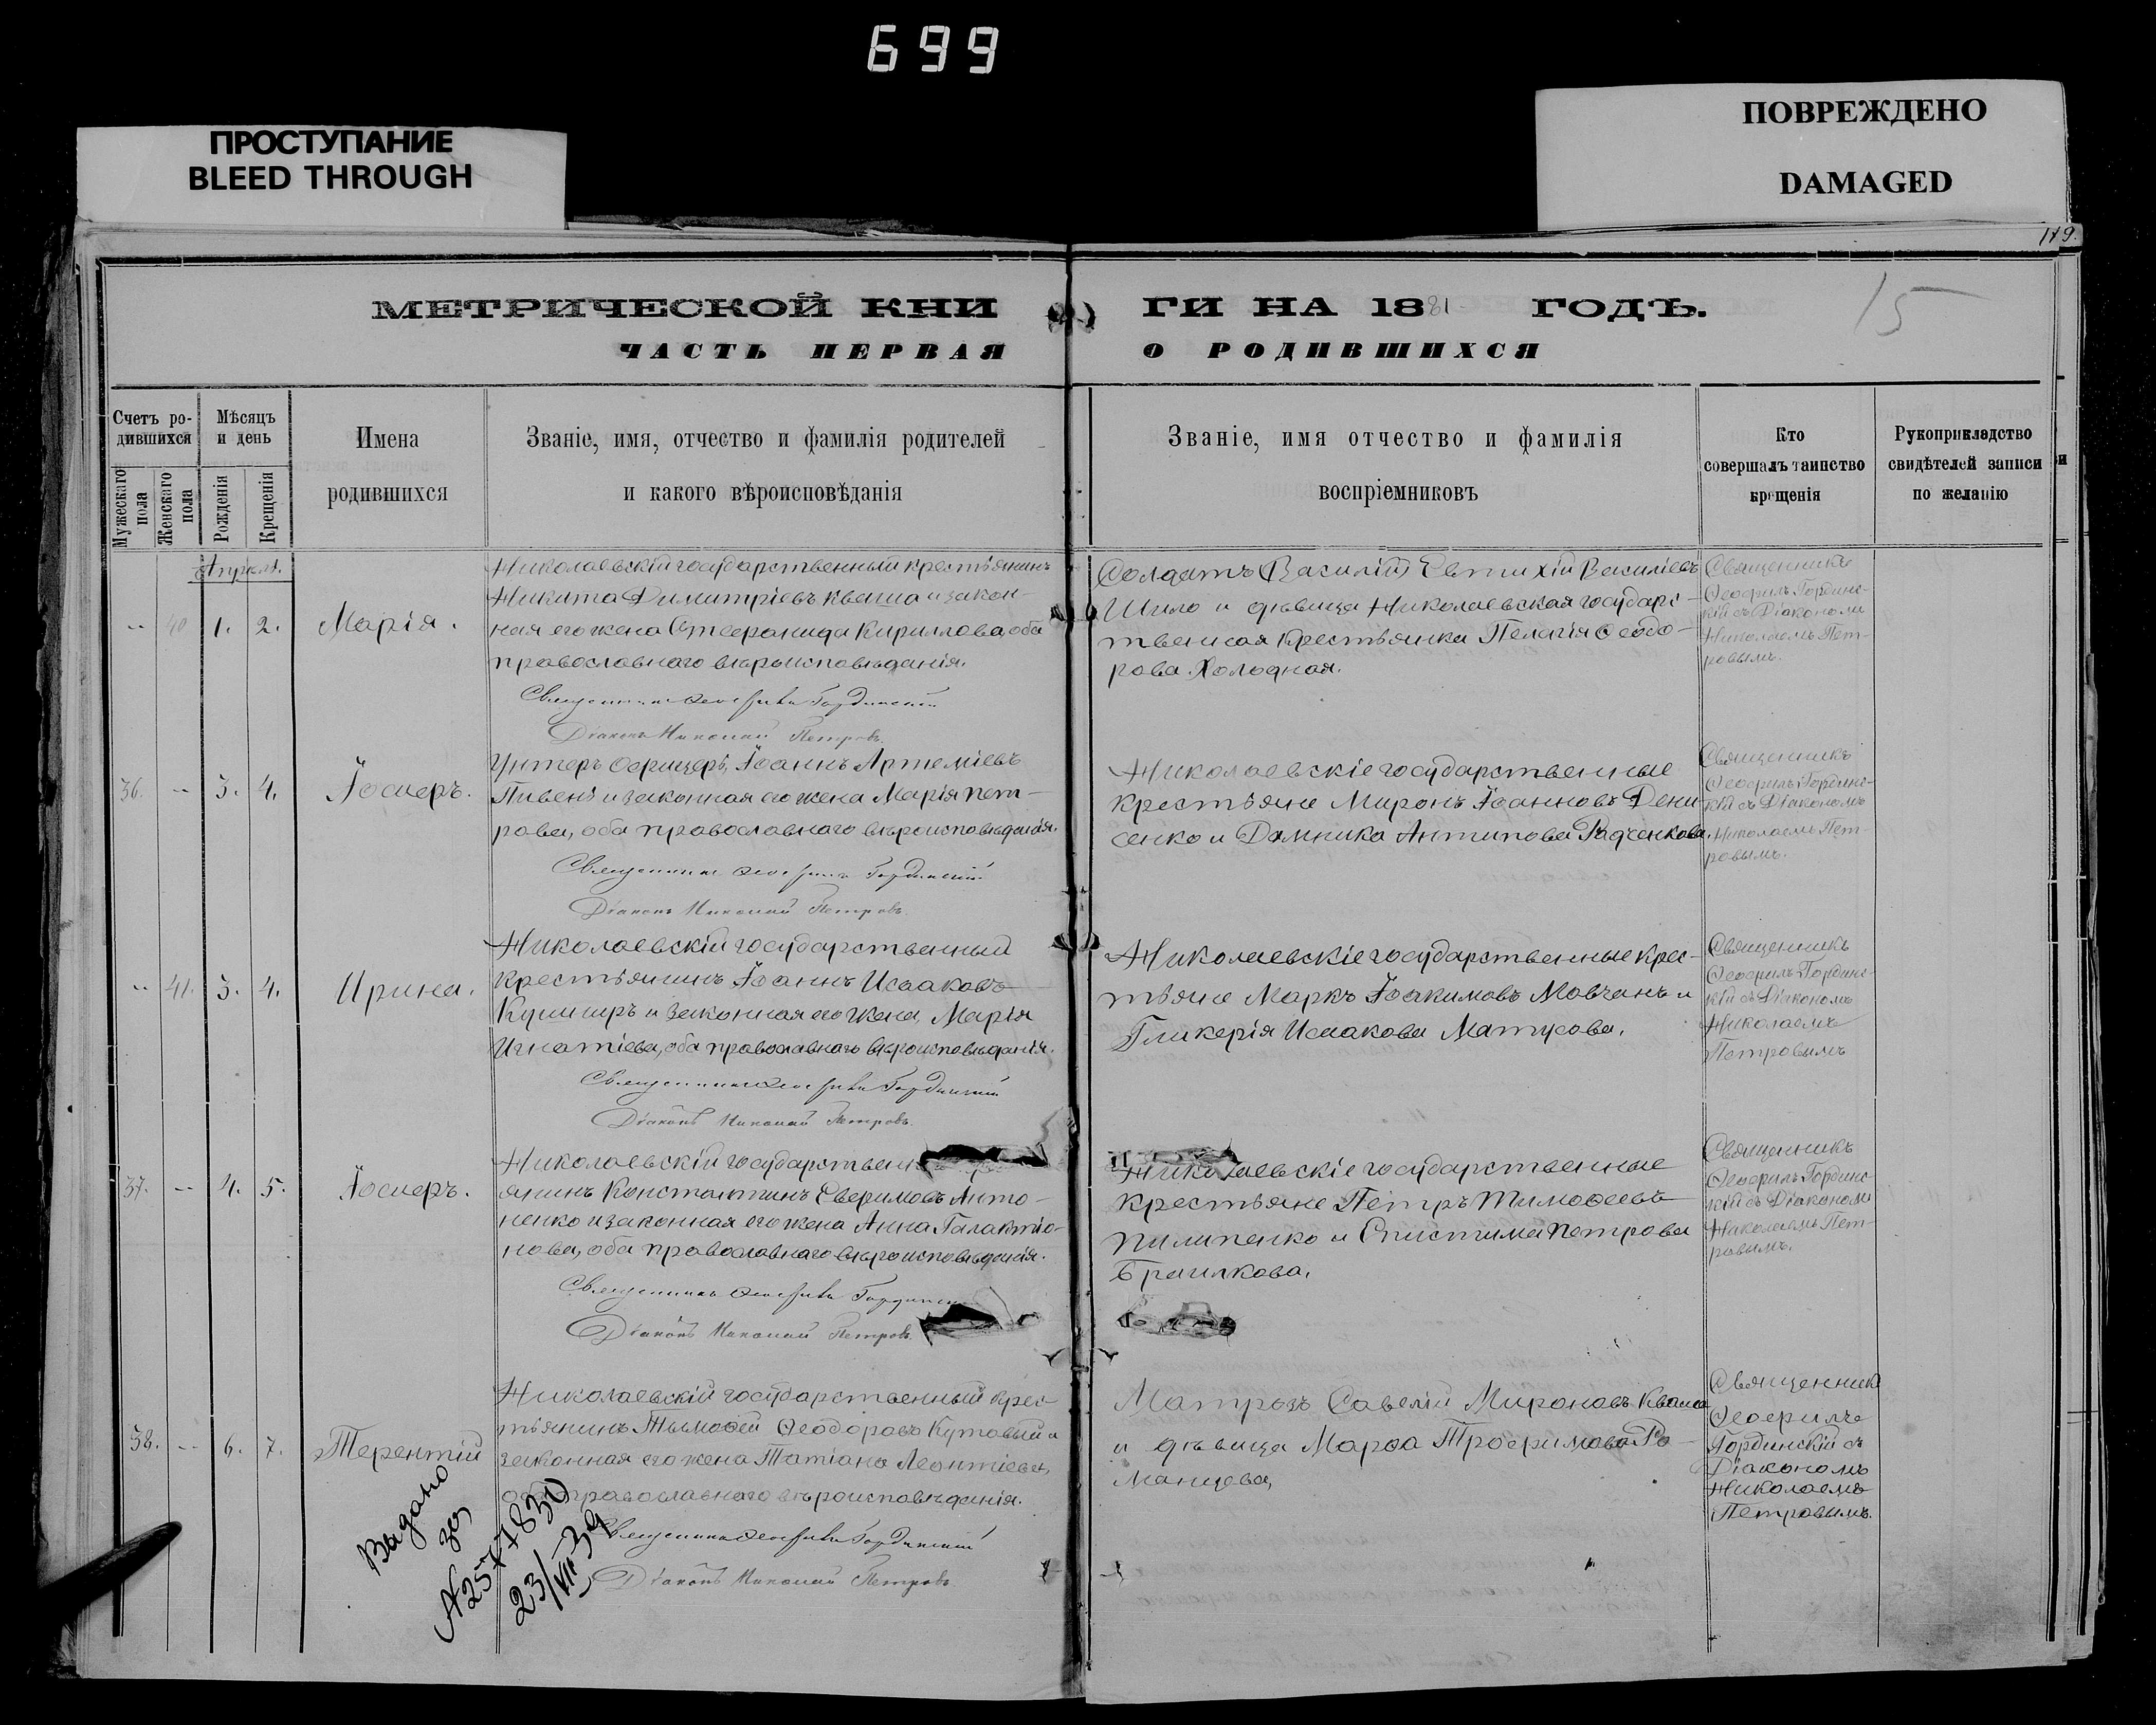 699
ПРОСТУПАНИЕ
BLEED THROUGH
ПОВРЕЖДЕНО
DAMAGED
119.
15
МЕТРИЧЕСКОЙ КНИ ГИ НА 1881 ГОДЪ.
ЧАСТЬ ПЕРВАЯ О РОДИВШИХСЯ
Счетъ ро-
дившихся
Мужескаго пола
Женскаго пола
Мѣсяцъ
и день
Рожденія
Крещенія
Имена
родившихся
Званіе, имя, отчество и фамилія родителей
и какого вѣроисповѣданія
Званіе, имя отчество и фамилія
воспріемниковъ
Кто
совершалъ таинство
крещенія
Рукоприкладство
свидѣтелей записи
по желанію
Апрѣля.
-- 40 1. 2. Марія.
Николаевскій государственный крестьянинъ
Никита Димитріевъ Кваша и закон-
ная его жена Стефанида Кириллова, оба
православнаго вѣроисповѣданія.
Священникъ Ѳеофилъ Гординскій
Діаконъ Николай Петровъ.
Солдатъ (Василій) Евтихій Василіевъ
Шило и дѣвица Николаевская государс-
твенная крестьянка Пелагія Ѳеодо-
рова Холодная.
Священникъ
Ѳеофилъ Гординс-
кій съ Діакономъ
Николаемъ Пет-
ровымъ.
36. -- 3. 4. Іосифъ.
Унтеръ офицеръ, Іоаннъ Артеміевъ
Пивень и законная его жена Марія Пет-
рова, оба православнаго вѣроисповѣданія.
Священникъ Ѳеофилъ Гординскій
Діаконъ Николай Петровъ.
Николаевскіе государственные
крестьяне Миронъ Іоанновъ Дени-
сенко и Домника Антипова Радченкова.
Священникъ
Ѳеофилъ Гординс-
кій съ Діакономъ
Николаемъ Пет-
ровымъ.
-- 41. 3. 4. Ирина.
Николаевскій государственный
крестьянинъ Іоаннъ Исааковъ
Кушниръ и законная его жена, Марія
Игнатіева, оба православнаго вѣроисповѣданія.
Священникъ Ѳеофилъ Гординскій
Діаконъ Николай Петровъ.
Николаевскіе государственные крес-
тьяне Маркъ Іоакимовъ Мовчанъ и
Гликерія Исаакова Матусова.
Священникъ
Ѳеофилъ Гординс-
кій съ Діакономъ
Николаемъ
Петровымъ
37. -- 4. 5. Іосифъ.
Николаевскій государствен
янинъ Константинъ Евфимовъ Анто-
ненко и законная его жена Анна Галактіо-
нова, оба православнаго вѣроисповѣданія.
Священникъ Ѳеофилъ Гординскій
Діаконъ Николай Петровъ.
Николаевскіе государственные
крестьяне Петръ Тимоѳеевъ
Пилипенко и Епистима Петрова
Брашкова.
Священникъ
Ѳеофилъ Гординс-
кій съ Діакономъ
Николаемъ Пет-
ровымъ.
38. -- 6. 7. Терентій
Николаевскій государственный крес-
тьянинъ Тимоѳей Ѳеодоровъ Кутовый и
законная его жена Татіана Леонтіева,
оба православнаго вѣроисповѣданія.
Священникъ Ѳеофилъ Гординскій
Діаконъ Николай Петровъ
Матрозъ Савелій Мироновъ Кваша
и дѣвица Марѳа Трофимова Ро-
манцева,
Священникъ
Ѳеофилъ
Гординскій съ
Діакономъ
Николаемъ
Петровымъ.
Выдано
за
N 2577830
23/VII 39